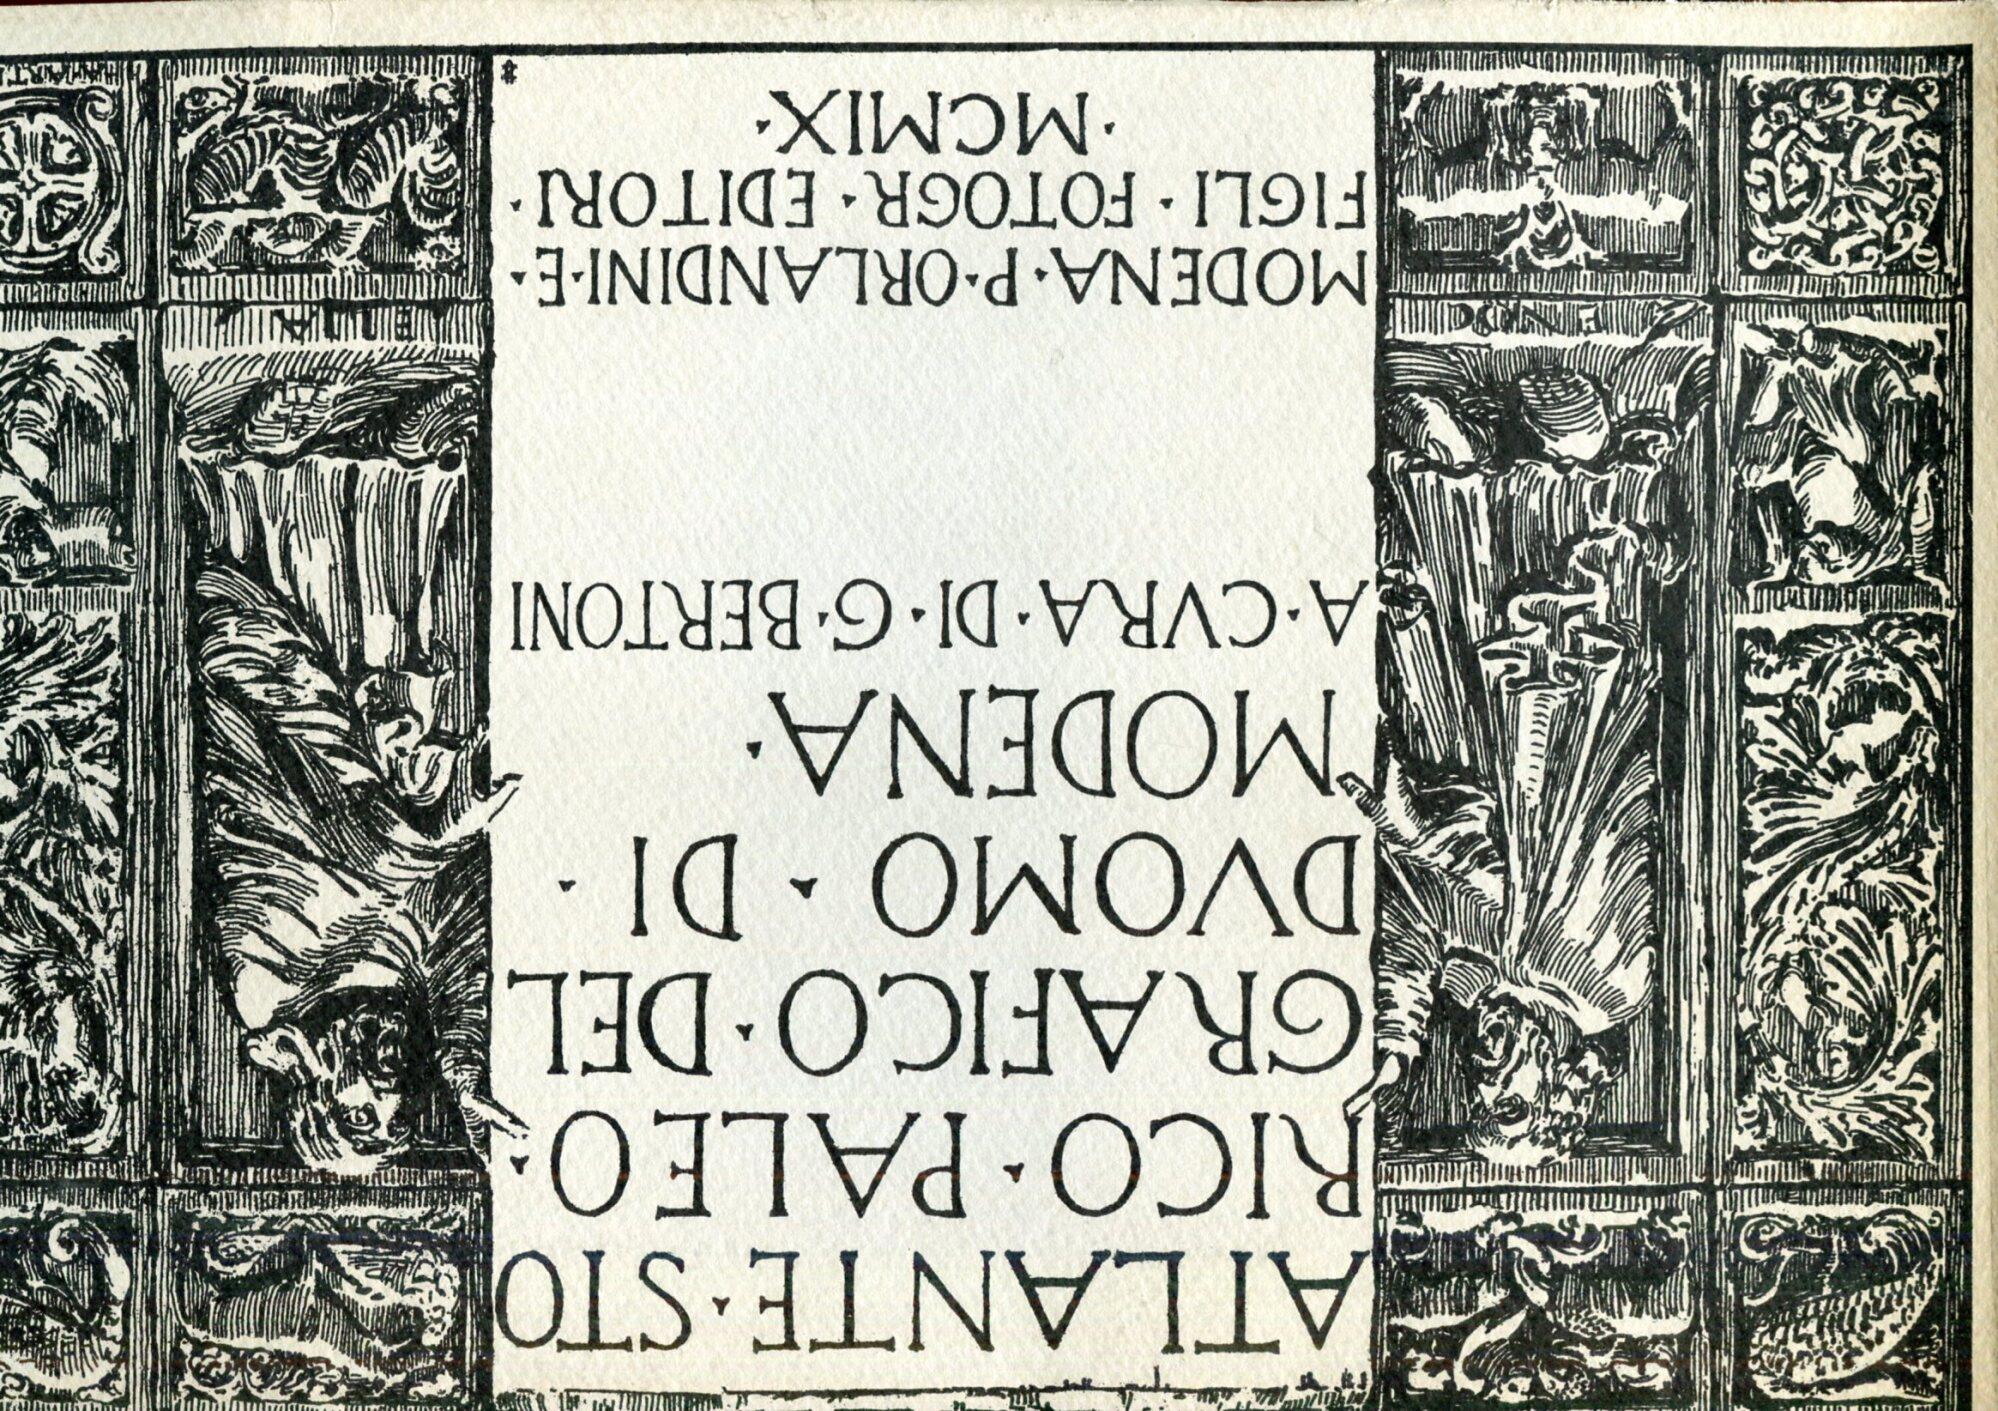 ATLANTE · STO
RICO · PALEO ·
GRAFICO · DEL
DVOMO · DI ·
MODENA ·
A · CVRA · DI · G · BERTONI
MODENA · P · ORLANDINI · E ·
FIGLI · FOTOGR · EDITORI ·
· MCMIX ·